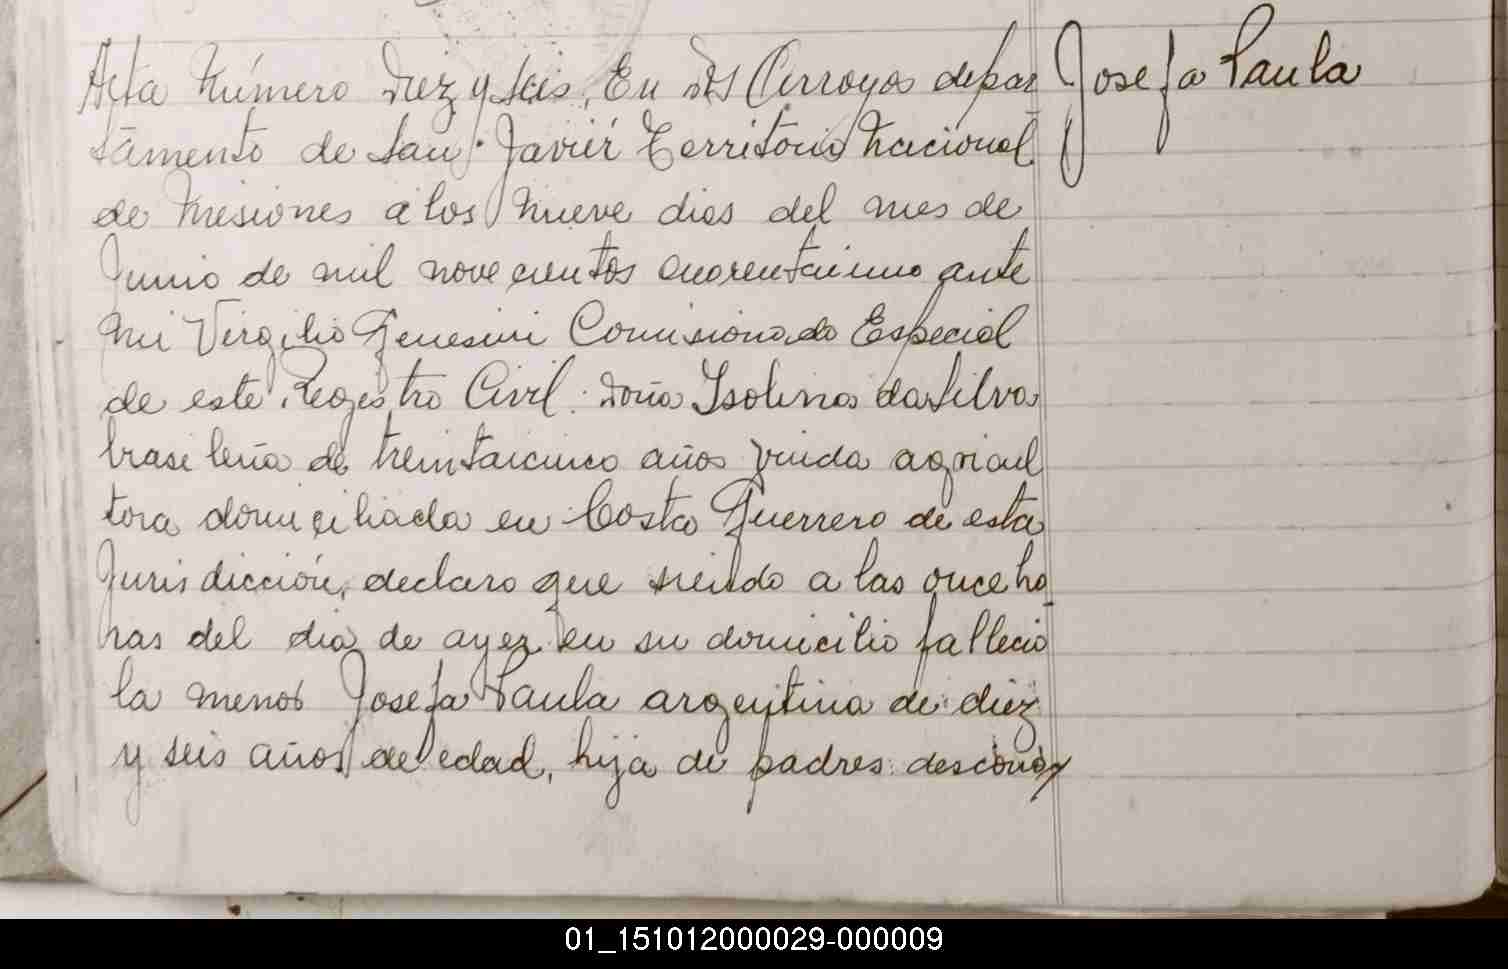 Acta Número Diez y seis. En Dos Arroyos depar
tamento de San Javier Territorio Nacional
de Misiones a los Nueve dias del mes de
Junio de mil novecientos cuarentaiuno ante
mi Virgilio Genesini Comisionado Especial
de este Registro Civil: Doña Isolina da Silva
brasileña de treintaicinco años viuda agricul
tora domiciliada en Costa Guerrero de esta
Jurisdicción, declaro que siendo a las once ho
ras del dia de ayer en su domicilio fallecio
la menor Josefa Paula argentina de diez
y seis años de edad, hija de padres descono
Josefa Paula
01_151012000029-000009